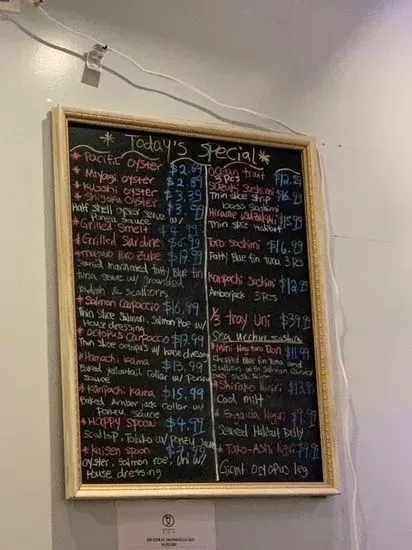 * Today's Special *
* Pacific oyster $2.69
* Miyagi oyster $2.89
* Kusshi oyster $3.39
* Shigoku oyster $3.59
Half shell oyster serve w/
Ponzu sauce
* Grilled Smelt $4.99
* Grilled Sardine $6.99
* Matsuo Toro Zuke $19.99
Seared marinated fatty Blue fin
tuna serve w/ grounded
radish & scallions
* Salmon Carpaccio $16.99
Thin slice Salmon, Salmon roe w/
House dressing
* Octopus Carpaccio $17.99
Thin slice octopus w/ House dressing
* Hamachi Kama $13.99
Baked yellowtail collar w/ Ponzu
sauce
* Kanpachi Kama $15.99
Baked Amber jack Collar w/
Ponzu sauce
* Happy spoon $4.99
Scallop, Tobiko w/ Ponzu sauce
* Kaisen spoon $7.99
oyster, salmon roe, uni w/
House dressing
Ocean trout
3 pcs
Suzuki Sashimi $16.99
Thin slice strip
bass sashimi
Hirame usuzukuri $15.99
Thin slice Halibut
Toro sashimi $16.99
Fatty Blue fin tuna 3 pcs
Kanpachi Sashimi
Amberjack 3 pcs
½ tray uni $39.99
Sea urchin sashimi
* Mini Negitoro Don $11.99
chopped Blue fin Tuna and
Scallion with Salmon caviar
over Sushi rice
* Shirako Nigiri
Cod milt
* Engawa Nigiri
Seared Halibut Belly
* Tako-Ashi Nigiri
Giant octopus leg